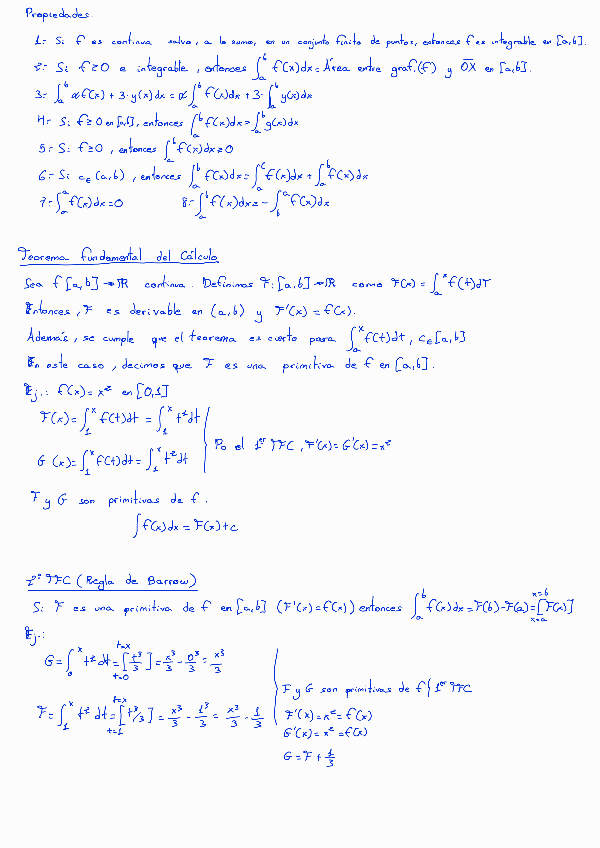 Propiedades.
1- Si f es continua salvo, a lo sumo, en un conjunto finito de puntos, entonces f es integrable en [a,b].
2- Si f≥0 e integrable, entonces ∫_a^b f(x)dx = Área entre graf.(f) y OX en [a,b].
3- ∫_a^b αf(x) + 3·y(x)dx = α∫_a^b f(x)dx + 3·∫_a^b y(x)dx
4- Si f≥0 en [a,b], entonces ∫_a^b f(x)dx = ∫_a^b g(x)dx
5- Si f≥0, entonces ∫_a^b f(x)dx≥0
6- Si c∈(a,b), entonces ∫_a^b f(x)dx = ∫_a^c f(x)dx + ∫_a^b f(x)dx
7- ∫_a^a f(x)dx=0 8- ∫_a^b f(x)dx = -∫_b^a f(x)dx
Teorema fundamental del Cálculo
Sea f [a,b]→ℝ continua. Definimos F:[a,b]→ℝ como F(x) = ∫_a^x f(t)dT
Entonces, F es derivable en (a,b) y F'(x) = f(x).
Además, se cumple que el teorema es cierto para ∫_a^x f(t)dt, c∈[a,b]
En este caso, decimos que F es una primitiva de f en [a,b].
Ej.: f(x)=x² en [0,1]
F(x)=∫_1^x f(t)dt = ∫_1^x t²dt
Po el 1er TFC, F'(x)=G'(x)=x²
G(x)=∫_1^x f(t)dt=∫_1^x t²dt
F y G son primitivas de f.
∫f(x)dx = F(x)+c
2º TFC (Regla de Barrow)
Si F es una primitiva de f en [a,b] (F'(x)=f(x)) entonces ∫_a^b f(x)dx=F(b)-F(a)=[F(x)]_{x=a}^{x=b}
Ej.:
G=∫_0^x t² dt=[t³/3]_{t=0}^{t=x}=x³/3-0³/3=x³/3
F y G son primitivas de f 1er TFC
F=∫_1^x t² dt=[t³/3]_{t=1}^{t=x}=x³/3-1³/3=x³/3-1/3
F'(x)=x²=f(x)
G'(x)=x²=f(x)
G=F+1/3